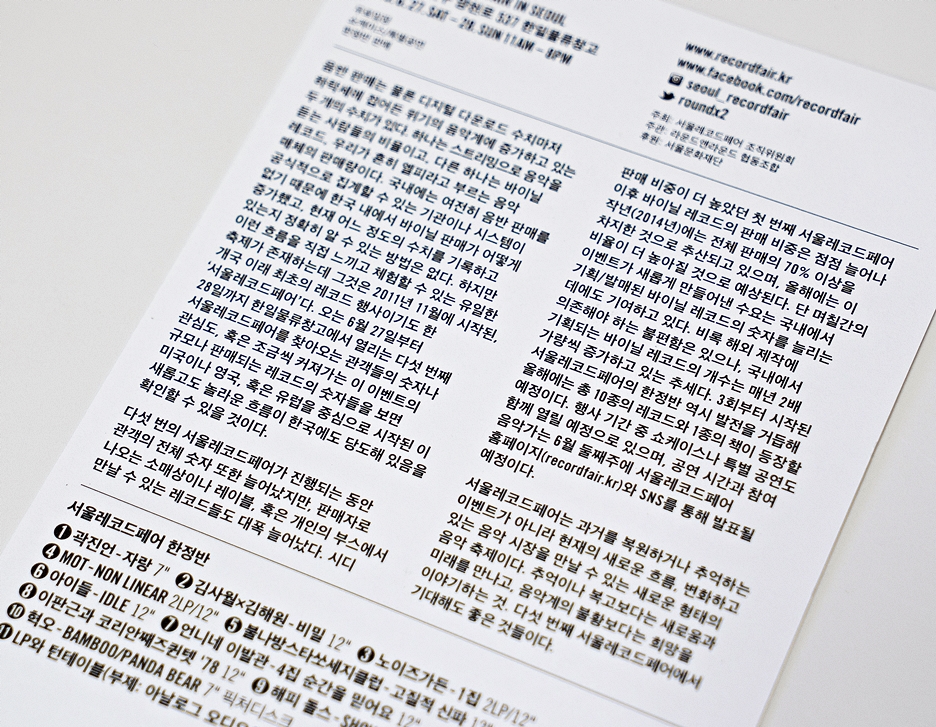 IN SEOUL
6.27.SAT - 28.SUN 11AM - 8PM
337 한일물류창고
www.recordfair.kr
www.facebook.com/recordfair
seoul_recordfair
roundx2
주최: 서울레코드페어 조직위원회
주관: 라운드앤라운드 협동조합
후원: 서울문화재단
음반 판매는 물론 디지털 다운로드 수치마저
하락세에 접어든 위기의 음악계에 증가하고 있는
두 개의 수치가 있다. 하나는 스트리밍으로 음악을
듣는 사람들의 비율이고, 다른 하나는 바이닐
레코드, 우리가 흔히 엘피라고 부르는 음악
매체의 판매량이다. 국내에는 여전히 음반 판매를
공식적으로 집계할 수 있는 기관이나 시스템이
없기 때문에 한국 내에서 바이닐 판매가 어떻게
증가했고, 현재 어느 정도의 수치를 기록하고
있는지 정확히 알 수 있는 방법은 없다. 하지만
이런 흐름을 직접 느끼고 체험할 수 있는 유일한
축제가 존재하는데 그것은 2011년 11월에 시작된,
개국 이래 최초의 레코드 행사이기도 한
'서울레코드페어'다. 오는 6월 27일부터
28일까지 한일물류창고에서 열리는 다섯 번째
서울레코드페어를 찾아오는 관객들의 숫자나
관심도, 혹은 조금씩 커져가는 이 이벤트의
규모나 판매되는 레코드의 숫자들을 보면
미국이나 영국, 혹은 유럽을 중심으로 시작된 이
새롭고도 놀라운 흐름이 한국에도 당도해 있음을
확인할 수 있을 것이다.
다섯 번의 서울레코드페어가 진행되는 동안
관객의 전체 숫자 또한 늘어났지만, 판매자로
나오는 소매상이나 레이블, 혹은 개인의 부스에서
만날 수 있는 레코드들도 대폭 늘어났다. 시디
판매 비중이 더 높았던 첫 번째 서울레코드페어
이후 바이닐 레코드의 판매 비중은 점점 늘어나
작년(2014년)에는 전체 판매의 70% 이상을
차지한 것으로 추산되고 있으며, 올해에는 이
비율이 더 높아질 것으로 예상된다. 단 며칠간의
이벤트가 새롭게 만들어낸 수요는 국내에서
기획/발매된 바이닐 레코드의 숫자를 늘리는
데에도 기여하고 있다. 비록 해외 제작에
의존해야 하는 불편함은 있으나, 국내에서
기획되는 바이닐 레코드의 개수는 매년 2배
가량씩 증가하고 있는 추세다. 3회부터 시작된
서울레코드페어의 한정반 역시 발전을 거듭해
올해에는 총 10종의 레코드와 1종의 책이 등장할
예정이다. 행사 기간 중 쇼케이스나 특별 공연도
함께 열릴 예정으로 있으며, 공연 시간과 참여
음악가는 6월 둘째주에 서울레코드페어
홈페이지(recordfair.kr)와 SNS를 통해 발표될
예정이다.
서울레코드페어는 과거를 복원하거나 추억하는
이벤트가 아니라 현재의 새로운 흐름, 변화하고
있는 음악 시장을 만날 수 있는 새로운 형태의
음악 축제이다. 추억이나 복고보다는 새로움과
미래를 만나고, 음악계의 불황보다는 희망을
이야기하는 것. 다섯 번째 서울레코드페어에서
기대해도 좋은 것들이다.
서울레코드페어 한정반
❶ 곽진언 - 자랑 7" ❷ 김사월×김해원 - 비밀 12" ❸ 노이즈가든 - 1집 2LP/12"
❹ MOT - NON LINEAR 2LP/12" ❺ 불나방스타쏘세지클럽 - 고질적 신파 12"
❻ 아이들 - IDLE 12" ❼ 언니네 이발관 - 4집 순간을 믿어요 12"
❽ 이판근과 코리안째즈퀸텟 '78 12" ❾ 해피 돌스 -
❿ 혁오 - BAMBOO/PANDA BEAR 7" 픽처디스크
⓫ LP와 턴테이블(부제: 아날로그